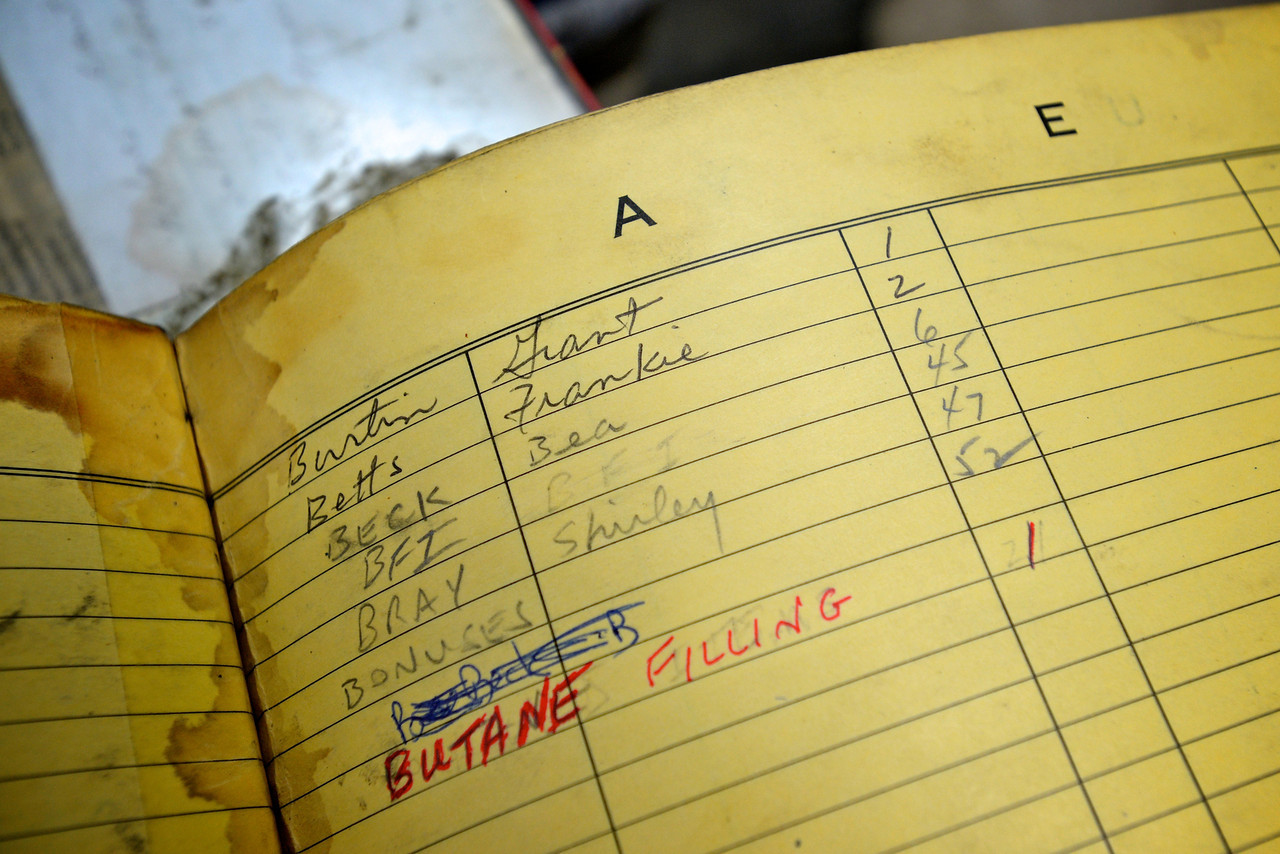 A E U
Burtin Grant 1
Betts Frankie 2
BECK Bea 6
BFI BFI 45
BRAY Shirley 47
BONUSES 52
B
BUTANE FILLING 1